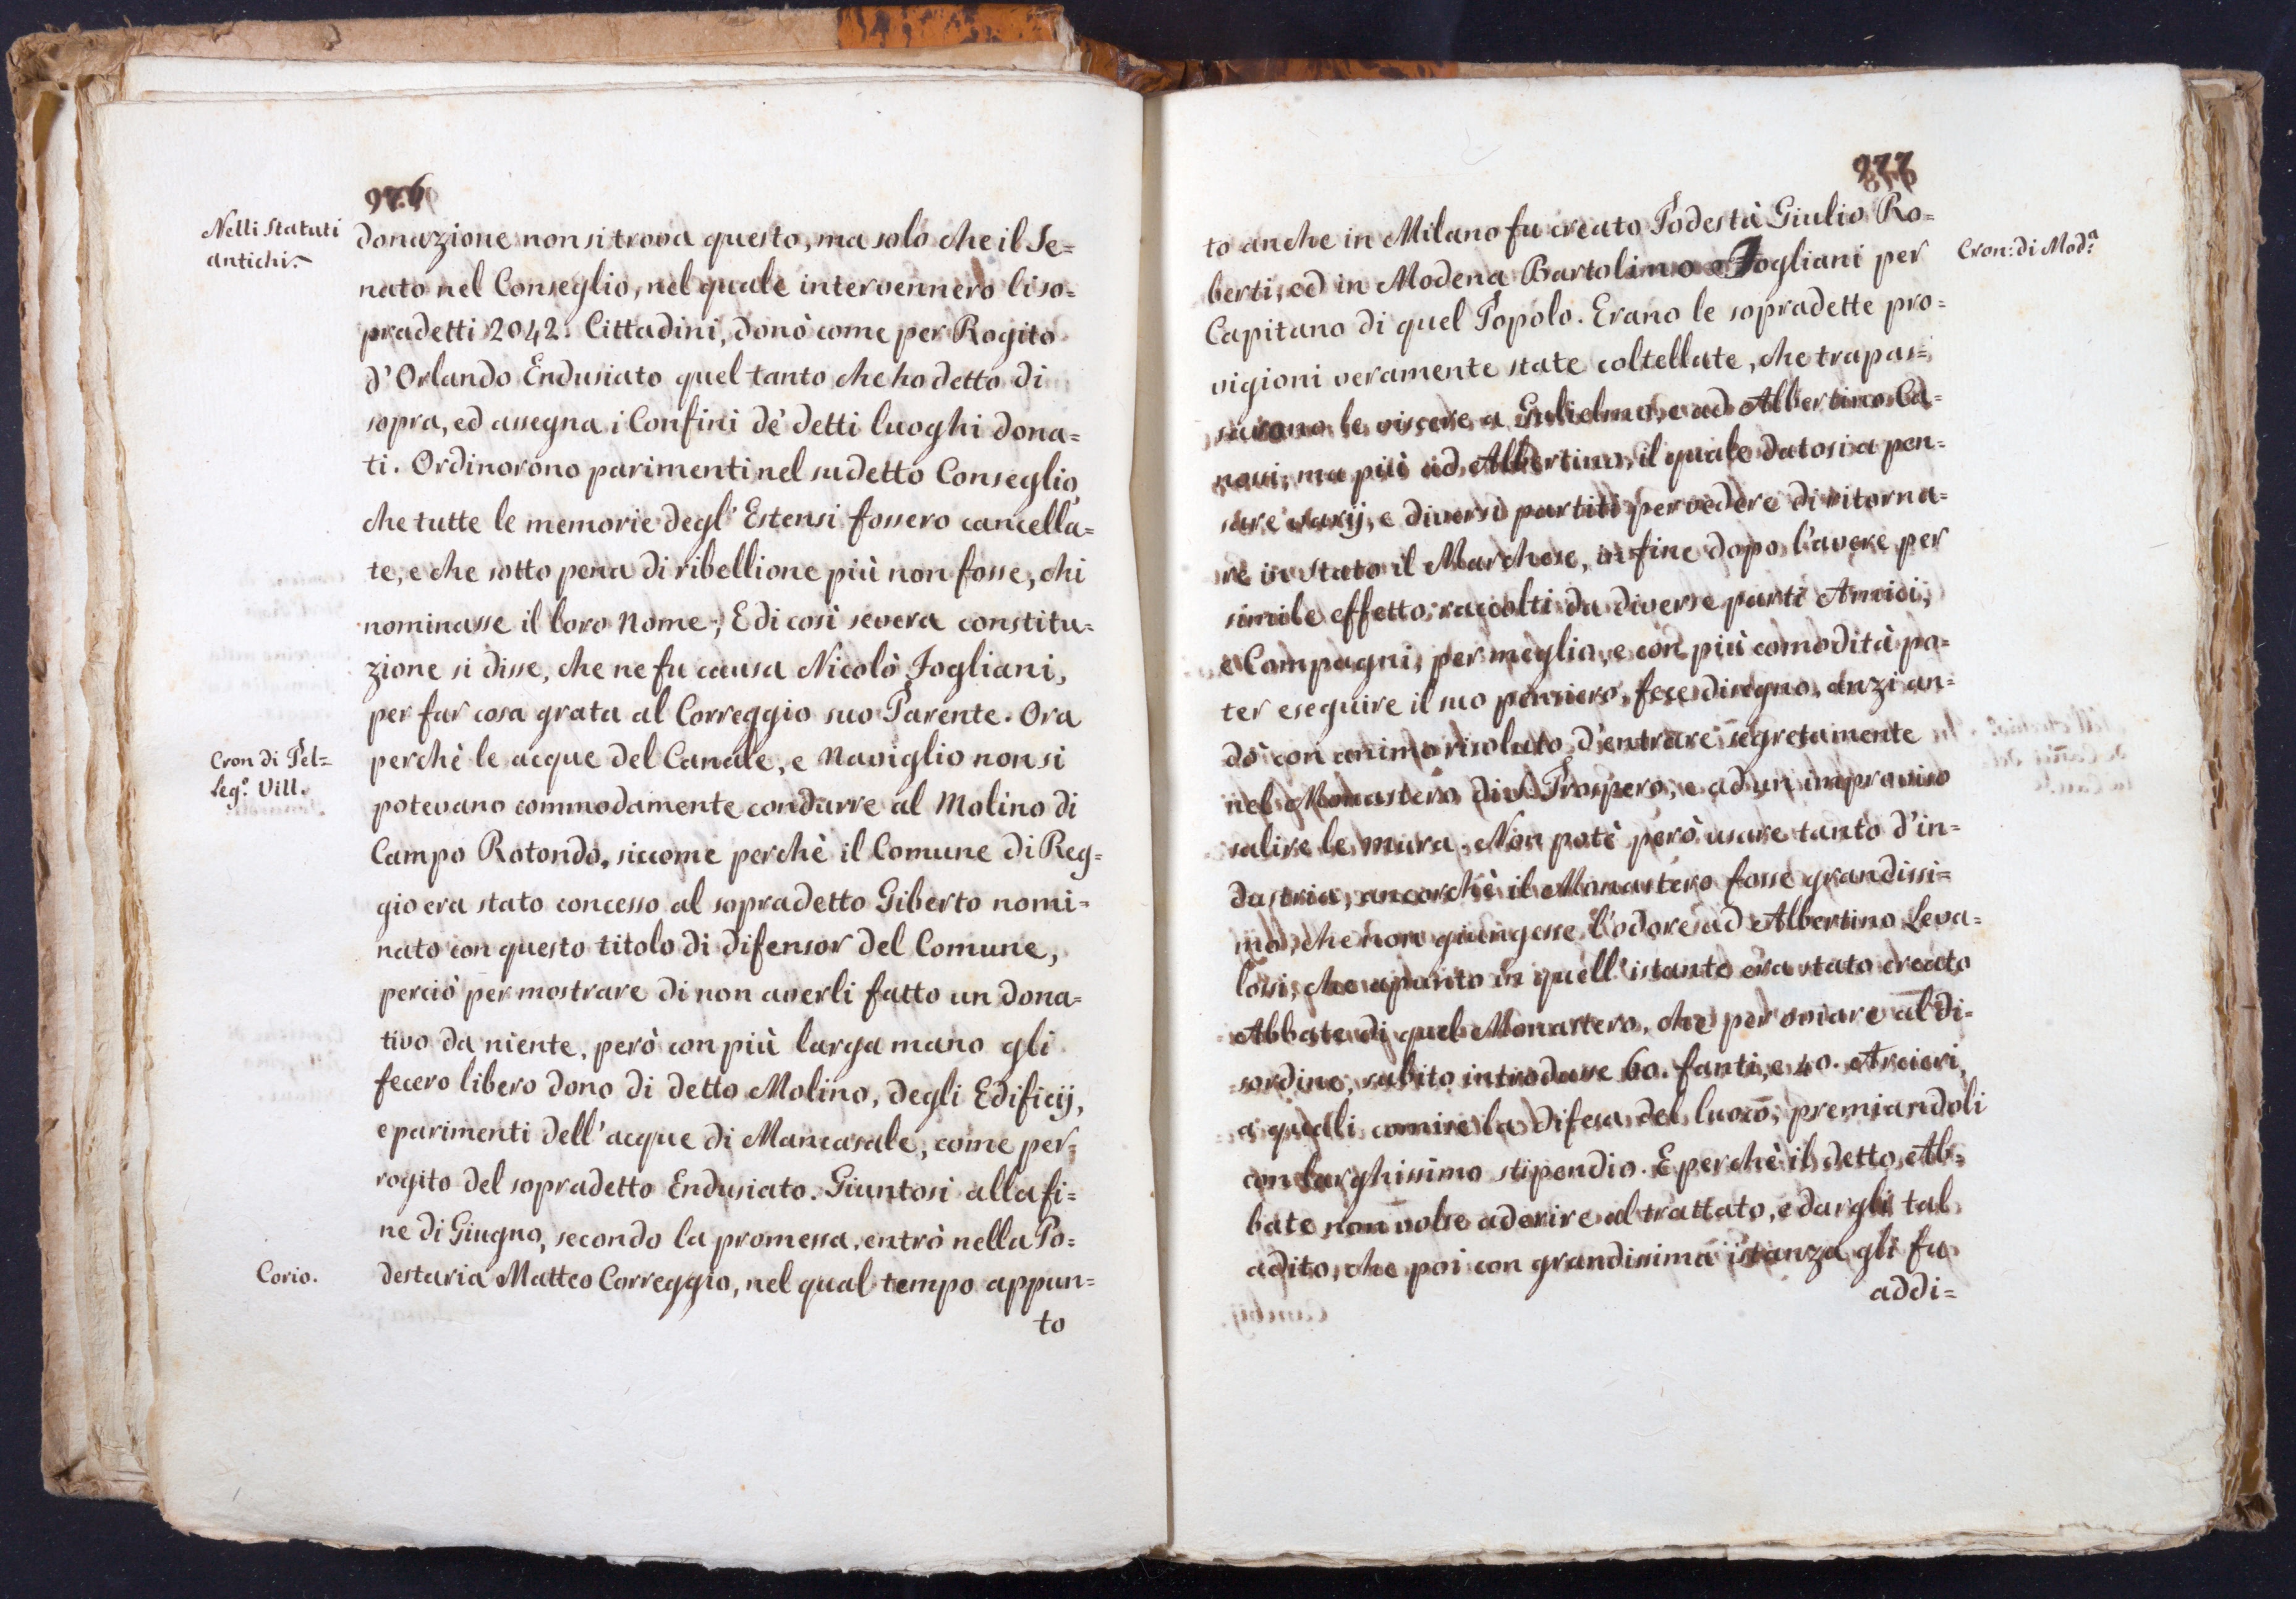 976
Nelli Statuti
antichi.
donazione non si trova questo, ma solo che il Se=
nato nel Conseglio, nel quale intervennero li so=
pradetti 2042. Cittadini, donò come per Rogito
d'Orlando Endusiato quel tanto che ho detto di
sopra, ed assegna i Confini dè detti luoghi dona=
ti. Ordinorono parimenti nel sudetto Conseglio,
che tutte le memorie degl' Estensi fossero cancella=
te, e che sotto pena di ribellione più non fosse, chi
nominasse il loro Nome; E di così severa constitu=
zione si disse, che ne fu causa Nicolò Fogliani,
per far cosa grata al Correggio suo Parente. Ora
Cron di Pel=
leg.º Vill.
perchè le acque del Canale, e Naviglio non si
potevano commodamente condurre al Molino di
Campo Rotondo, siccome perchè il Comune di Reg=
gio era stato concesso al sopradetto Giberto nomi=
nato con questo titolo di difensor del Comune,
perciò per mostrare di non averli fatto un dona=
tivo da niente, però con più larga mano gli
fecero libero dono di detto Molino, degli Edificij,
e parimenti dell'acque di Mancasale, come per
rogito del sopradetto Endusiato. Giuntosi alla fi=
ne di Giugno, secondo la promessa, entrò nella Po=
Corio.
destaria Matteo Correggio, nel qual tempo appun=
to
977
to anche in Milano fu creato Podestà Giulio Ro=
Cron: di Mod.ª
berti, ed in Modena Bartolino Fogliani per
Capitano di quel Popolo. Erano le sopradette pro=
vigioni veramente state coltellate, che trapas=
sarono le viscere a Gulielmo, e ad Albertino Ca=
novi, ma più ad Albertino, il quale datosi a pen=
sare varij, e diversi partiti per vedere di ritorna=
re in Stato il Marchese, in fine dopo l'avere per
simile effetto raccolti da diverse parti Amici,
e Compagni, per meglio, e con più comodità po=
ter eseguire il suo pensiero, fece disegno, anzi an=
dò con animo risoluto d'entrare segretamente
nel Monastero di S. Prospero, e ad un improviso
salire le mura. Non potè però usare tanto d'in=
dustria, ancorchè il Monastero fosse grandissi=
mo, che non giungesse l'odore ad Albertino Leva=
losi, che apunto in quell'istante era stato creato
Abbate di quel Monastero, che per oviare al di=
sordine, subito introdusse 60. fanti, e 40. Arcieri,
a' quali comise la difesa del luoco, premiandoli
con larghissimo stipendio. E perchè il detto Ab=
bate non volse aderire al trattato, e dargli tal
adito, che poi con grandissima istanza gli fu
addi=